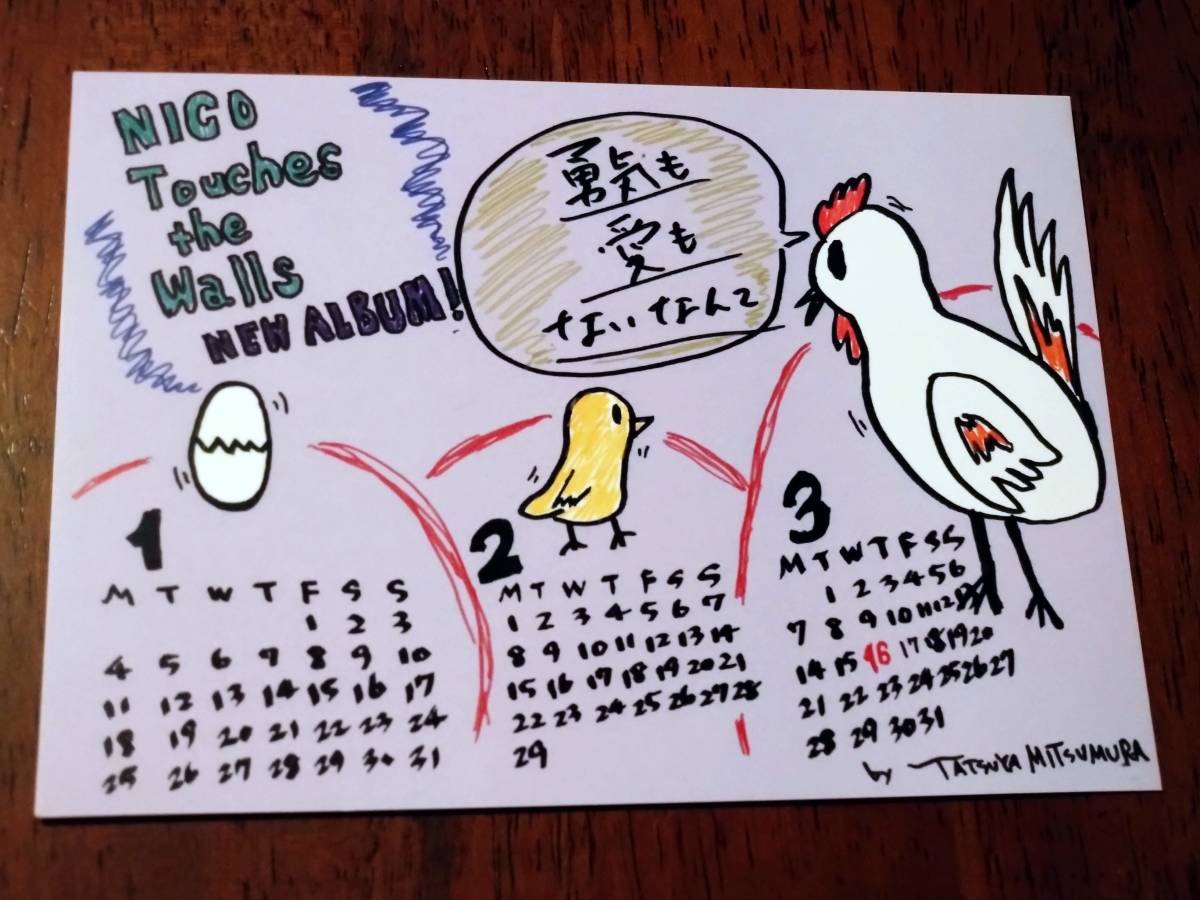 NICO
Touches
the
Walls
NEW ALBUM!
勇気も
愛も
ないなんて
1
M T W T F S S
1 2 3
4 5 6 7 8 9 10
11 12 13 14 15 16 17
18 19 20 21 22 23 24
25 26 27 28 29 30 31
2
M T W T F S S
1 2 3 4 5 6 7
8 9 10 11 12 13 14
15 16 17 18 19 20 21
22 23 24 25 26 27 28
29
3
M T W T F S S
1 2 3 4 5 6
7 8 9 10 11 12 13
14 15 16 17 18 19 20
21 22 23 24 25 26 27
28 29 30 31
by TATSUYA MITSUMURA